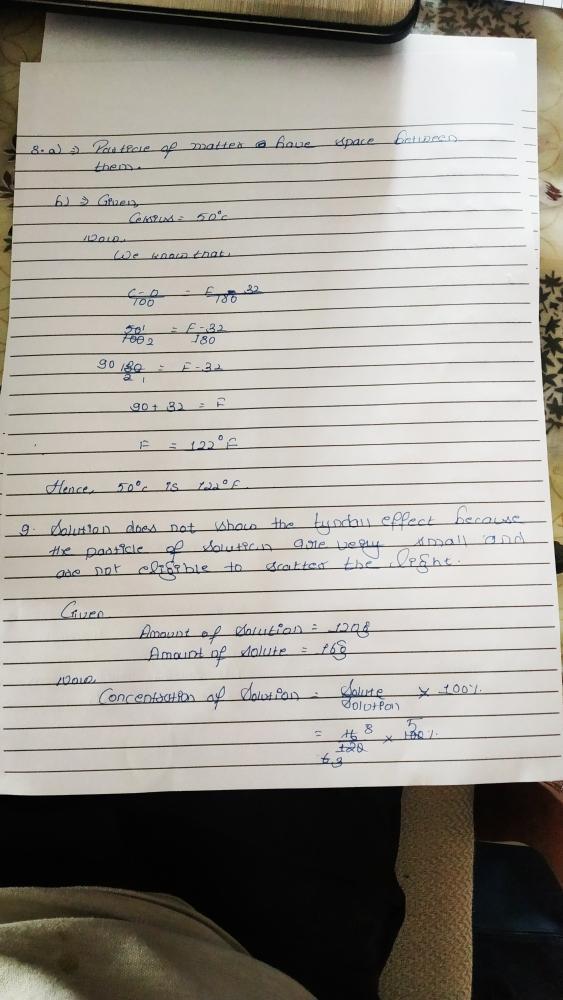 8. a) ⇒ Particle of matter have space between
them.
b) ⇒ Given
Celsius = 50°c
Now,
We know that,
C-0/100 = F-32/180
50 1/100 2 = F-32/180
90 180/2 1 = F-32
90 + 32 = F
F = 122°F
Hence, 50°c is 122°F.
9. Solution does not show the tyndall effect because
the particle of solution are very small and
are not eligible to scatter the light.
Given
Amount of solution = 120g
Amount of solute = 16g
Now,
Concentration of solution = Solute/Solution × 100%
= 16 8/120 6 3 × 100 5 %